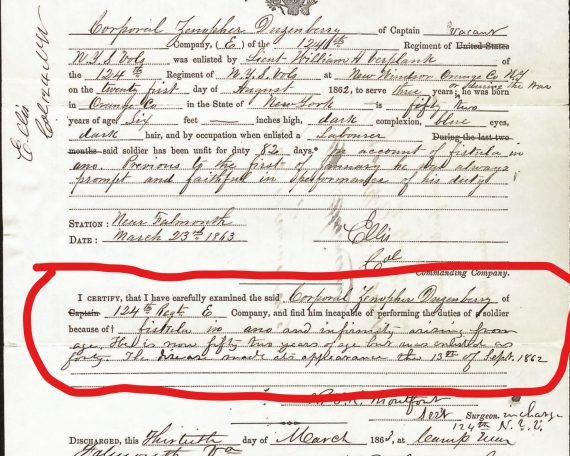 Corporal Zenopher Duzenberry of Captain vacant
Company, (E.) of the 124th Regiment of United States
N.Y.S. Vols was enlisted by Lieut William A Verplank of
the 124th Regiment of N.Y.S. Vols at New Windsor Orange Co N.Y.
on the twenty first day of August 1862, to serve three years; he was born or during the War
in Orange Co in the State of New York is fifty two
years of age, six feet inches high, dark complexion, blue eyes,
dark hair, and by occupation when enlisted a Labourer During the last two
months said soldier has been unfit for duty 82 days.* on account of fistula in
ano. Previous to the first of January he was always
prompt and faithful in performance of his duty
Station: Near Falmouth
Date: March 23rd 1863
Ellis
Col
Commanding Company.
Ellis
I certify, that I have carefully examined the said Corporal Zenopher Duzenberry of
Captain 124th Regt E Company, and find him incapable of performing the duties of a soldier
because of† fistula in ano and infirmity arising from
age. He is now fifty two years of age but was enlisted as
forty. The disease made its appearance the 13th of Sept. 1862
Montfort
Surgeon. in charge
124th N.Y.V.
Discharged, this Thirtieth day of March 1863, at Camp near
Falmouth Va